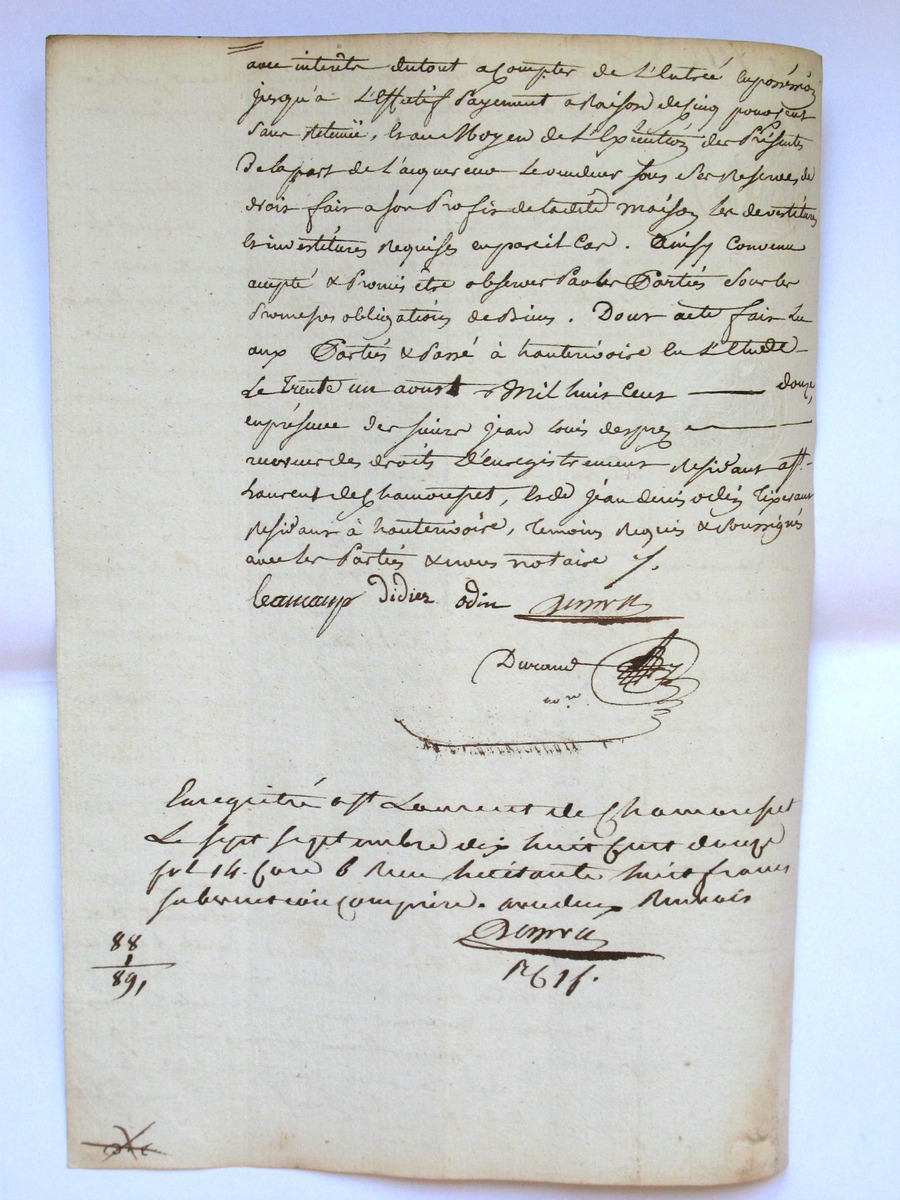 avec intérêts dutout a Compter de L'Entrée enpossession
jusqu'a L'Effectif Payement a Raison de Cinq pourcent
Sans Retenüe, Et au Moyen de L'Exécution des Présentes
De la part de L'acquereur Le vendeur Sous Ses Reserves de
droit fait a Son Profit de ladite maison les devestitures
et investitures Requises en pareil Cas. Ainsy Convenu
accepté & Promis être observé Par les Parties Sous les
Promesses obligations de Biens. Dont acte fait Lu
aux Parties & Passé à hauterivoire En L'Etude
Le Trente un aoust Mil huit Cent douze,
en présence de Jean Louis desprez
receveur des droits D'enregistrement Residant a St
Laurent de Chamousset, Et de Jean denis odin Tisserant
Residant à hauterivoire, Temoins Requis & Soussignés
avec les Parties & nous notaire
beaucoup Didier odin Desprez
Durand
nore
Enregistré a St Laurent de Chamousset
Le sept septembre dix huit Cent douze
fol 14. Case 6 Recu huitante huit francs
subvention comprise.
Desprez
88
1
89,